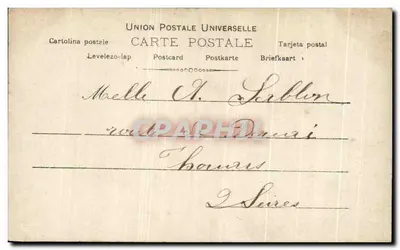 UNION POSTALE UNIVERSELLE
Cartolina postale CARTE POSTALE Tarjeta postal
Levelezo-lap Postcard Postkarte Briefkaart
Melle A. Sablon
route de
Thouars
2 Sèvres